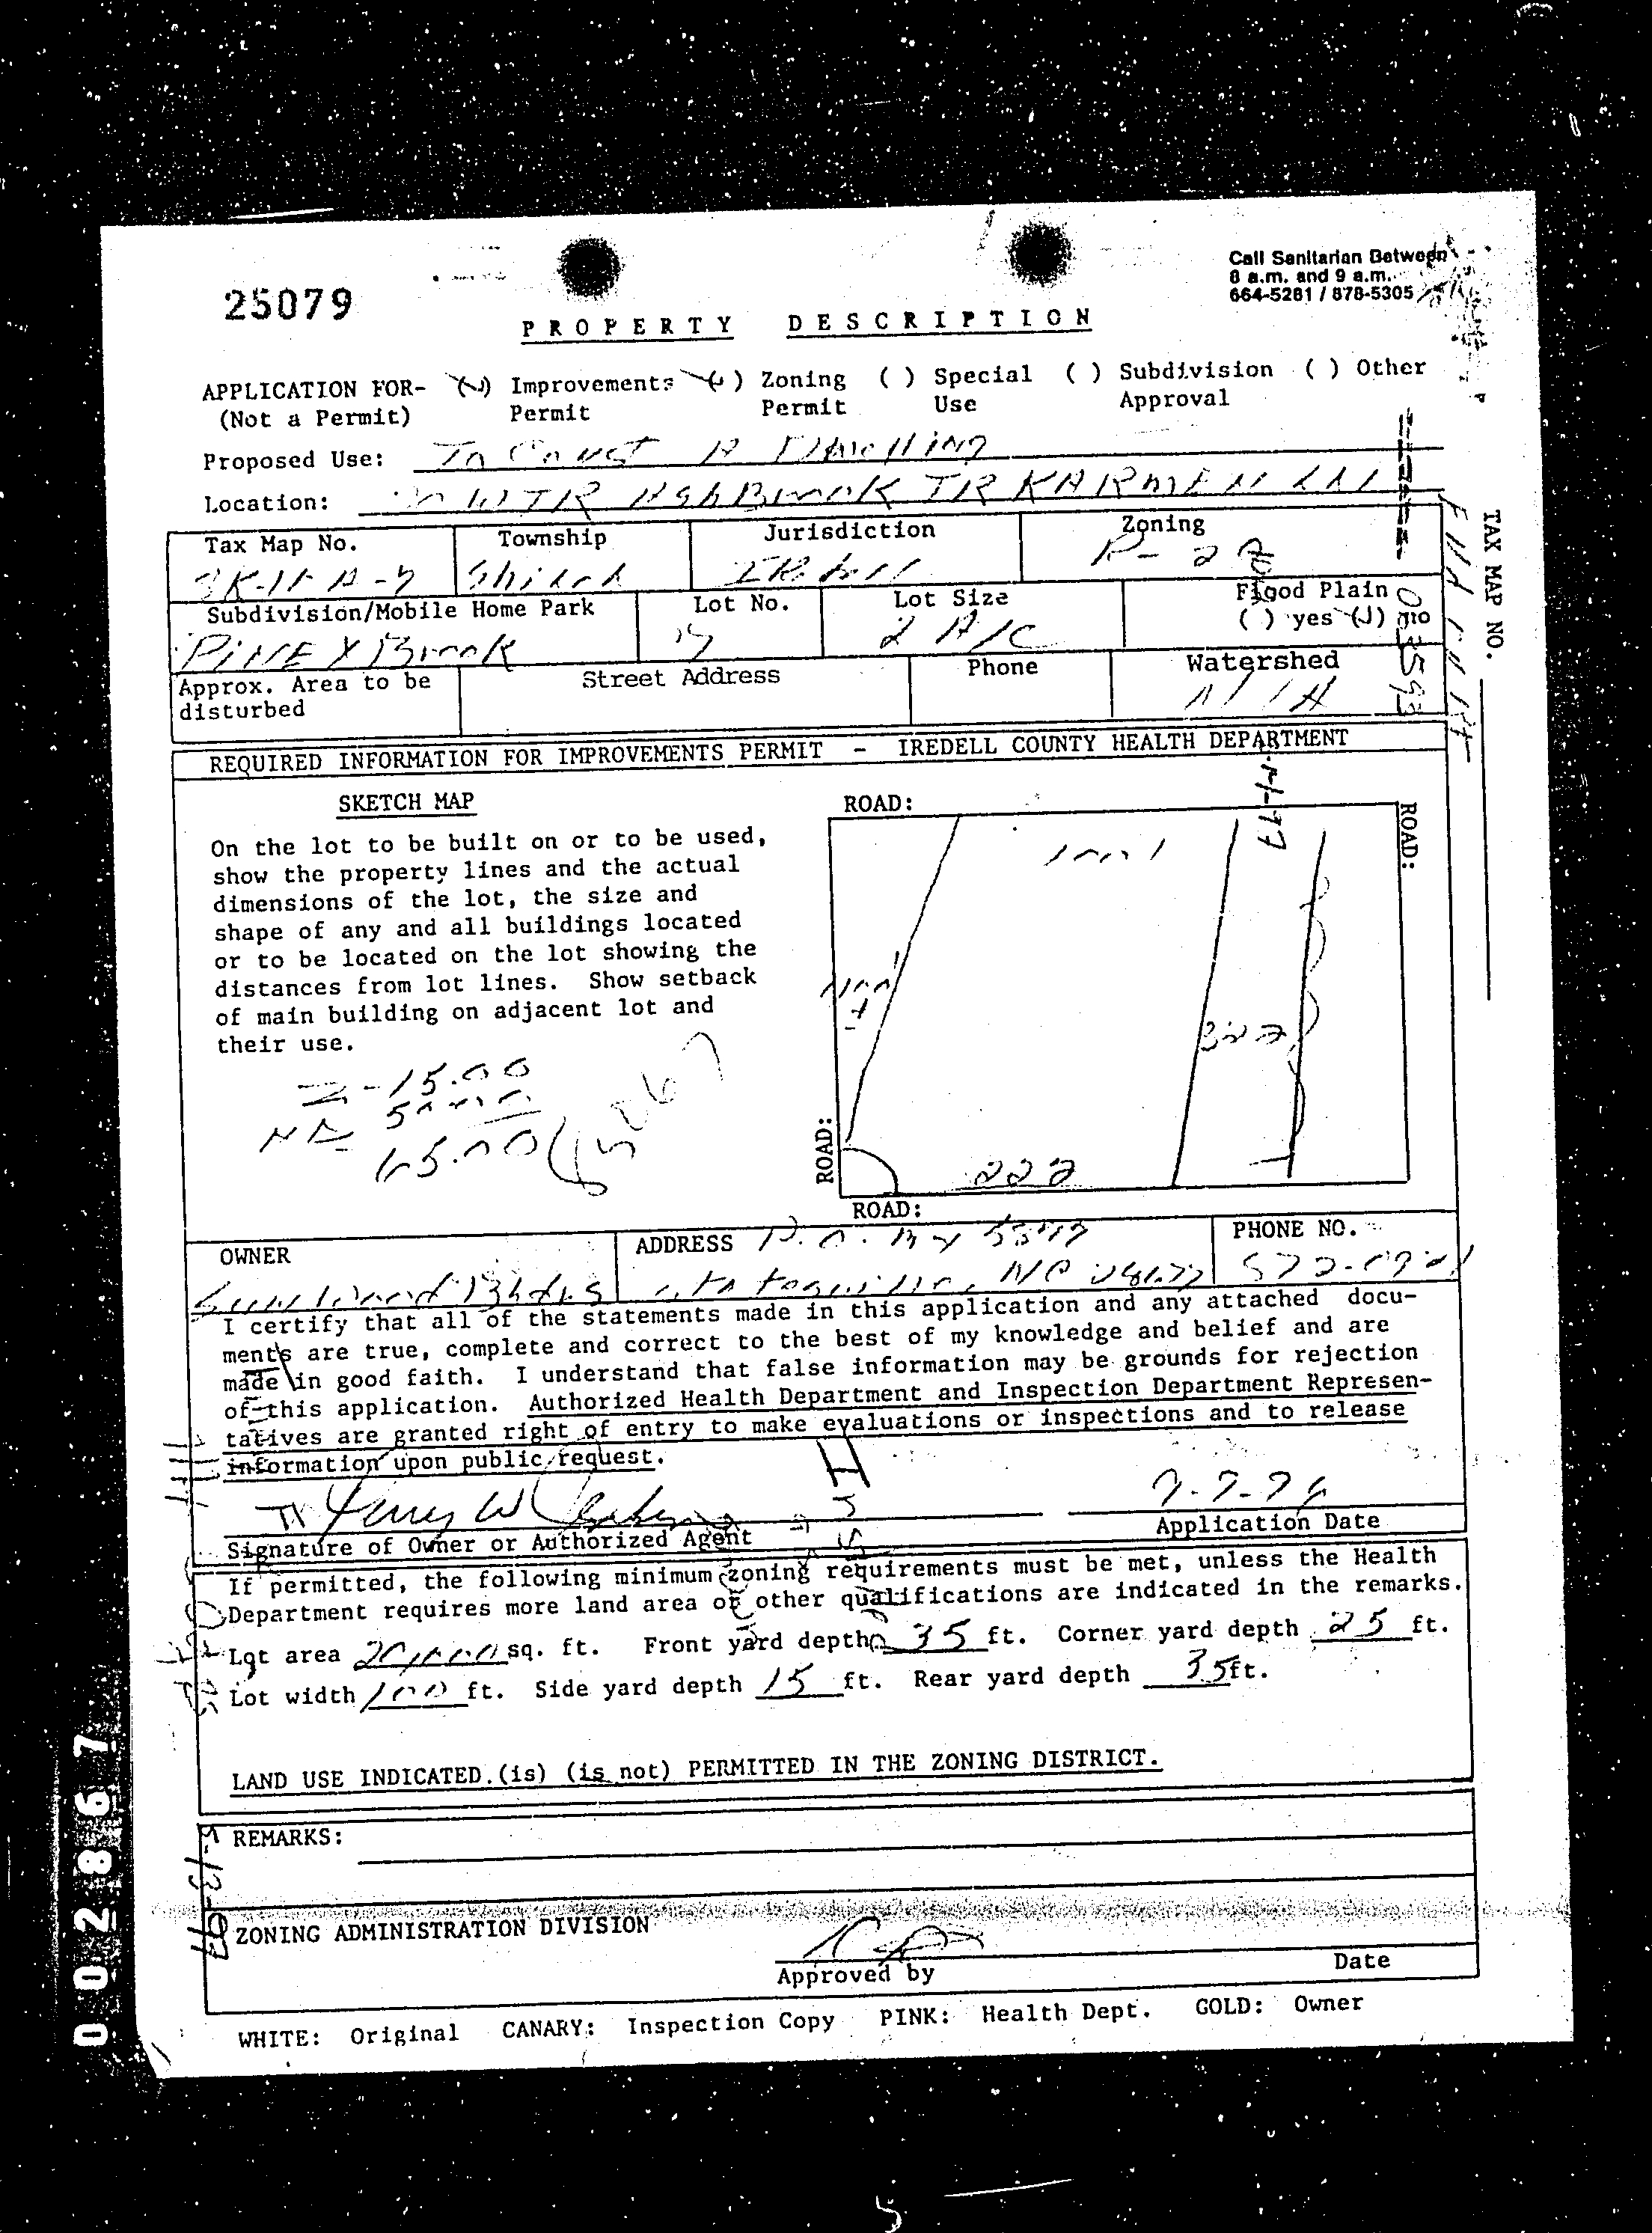 Call Sanitarian Between
8 a.m. and 9 a.m.
664-5281 / 878-5305
25079
PROPERTY DESCRIPTION
APPLICATION FOR- ( ) Improvements ( ) Zoning ( ) Special ( ) Subdivision ( ) Other
(Not a Permit) Permit Permit Use Approval
Proposed Use: To Const A Dwelling
Location:
TAX MAP NO.
Tax Map No. Township Jurisdiction Zoning
Shiloh Iredell R-20
Subdivision/Mobile Home Park Lot No. Lot Size Flood Plain
( ) yes (√) no
PINE X Brook 2 A/C
Approx. Area to be Street Address Phone Watershed
disturbed
N/A
REQUIRED INFORMATION FOR IMPROVEMENTS PERMIT - IREDELL COUNTY HEALTH DEPARTMENT
SKETCH MAP
ROAD:
ROAD:
On the lot to be built on or to be used,
show the property lines and the actual
dimensions of the lot, the size and
shape of any and all buildings located
or to be located on the lot showing the
distances from lot lines. Show setback
of main building on adjacent lot and
their use.
322
15.00
222
ROAD:
ROAD:
OWNER ADDRESS PHONE NO.
Statesville, NC
I certify that all of the statements made in this application and any attached docu-
ments are true, complete and correct to the best of my knowledge and belief and are
made in good faith. I understand that false information may be grounds for rejection
of this application. Authorized Health Department and Inspection Department Represen-
tatives are granted right of entry to make evaluations or inspections and to release
information upon public request.
Signature of Owner or Authorized Agent Application Date
If permitted, the following minimum zoning requirements must be met, unless the Health
Department requires more land area or other qualifications are indicated in the remarks.
Lot area 20,000 sq. ft. Front yard depth 35 ft. Corner yard depth 25 ft.
Lot width 100 ft. Side yard depth 15 ft. Rear yard depth 35 ft.
LAND USE INDICATED (is) (is not) PERMITTED IN THE ZONING DISTRICT.
REMARKS:
ZONING ADMINISTRATION DIVISION
Approved by Date
WHITE: Original CANARY: Inspection Copy PINK: Health Dept. GOLD: Owner
002867